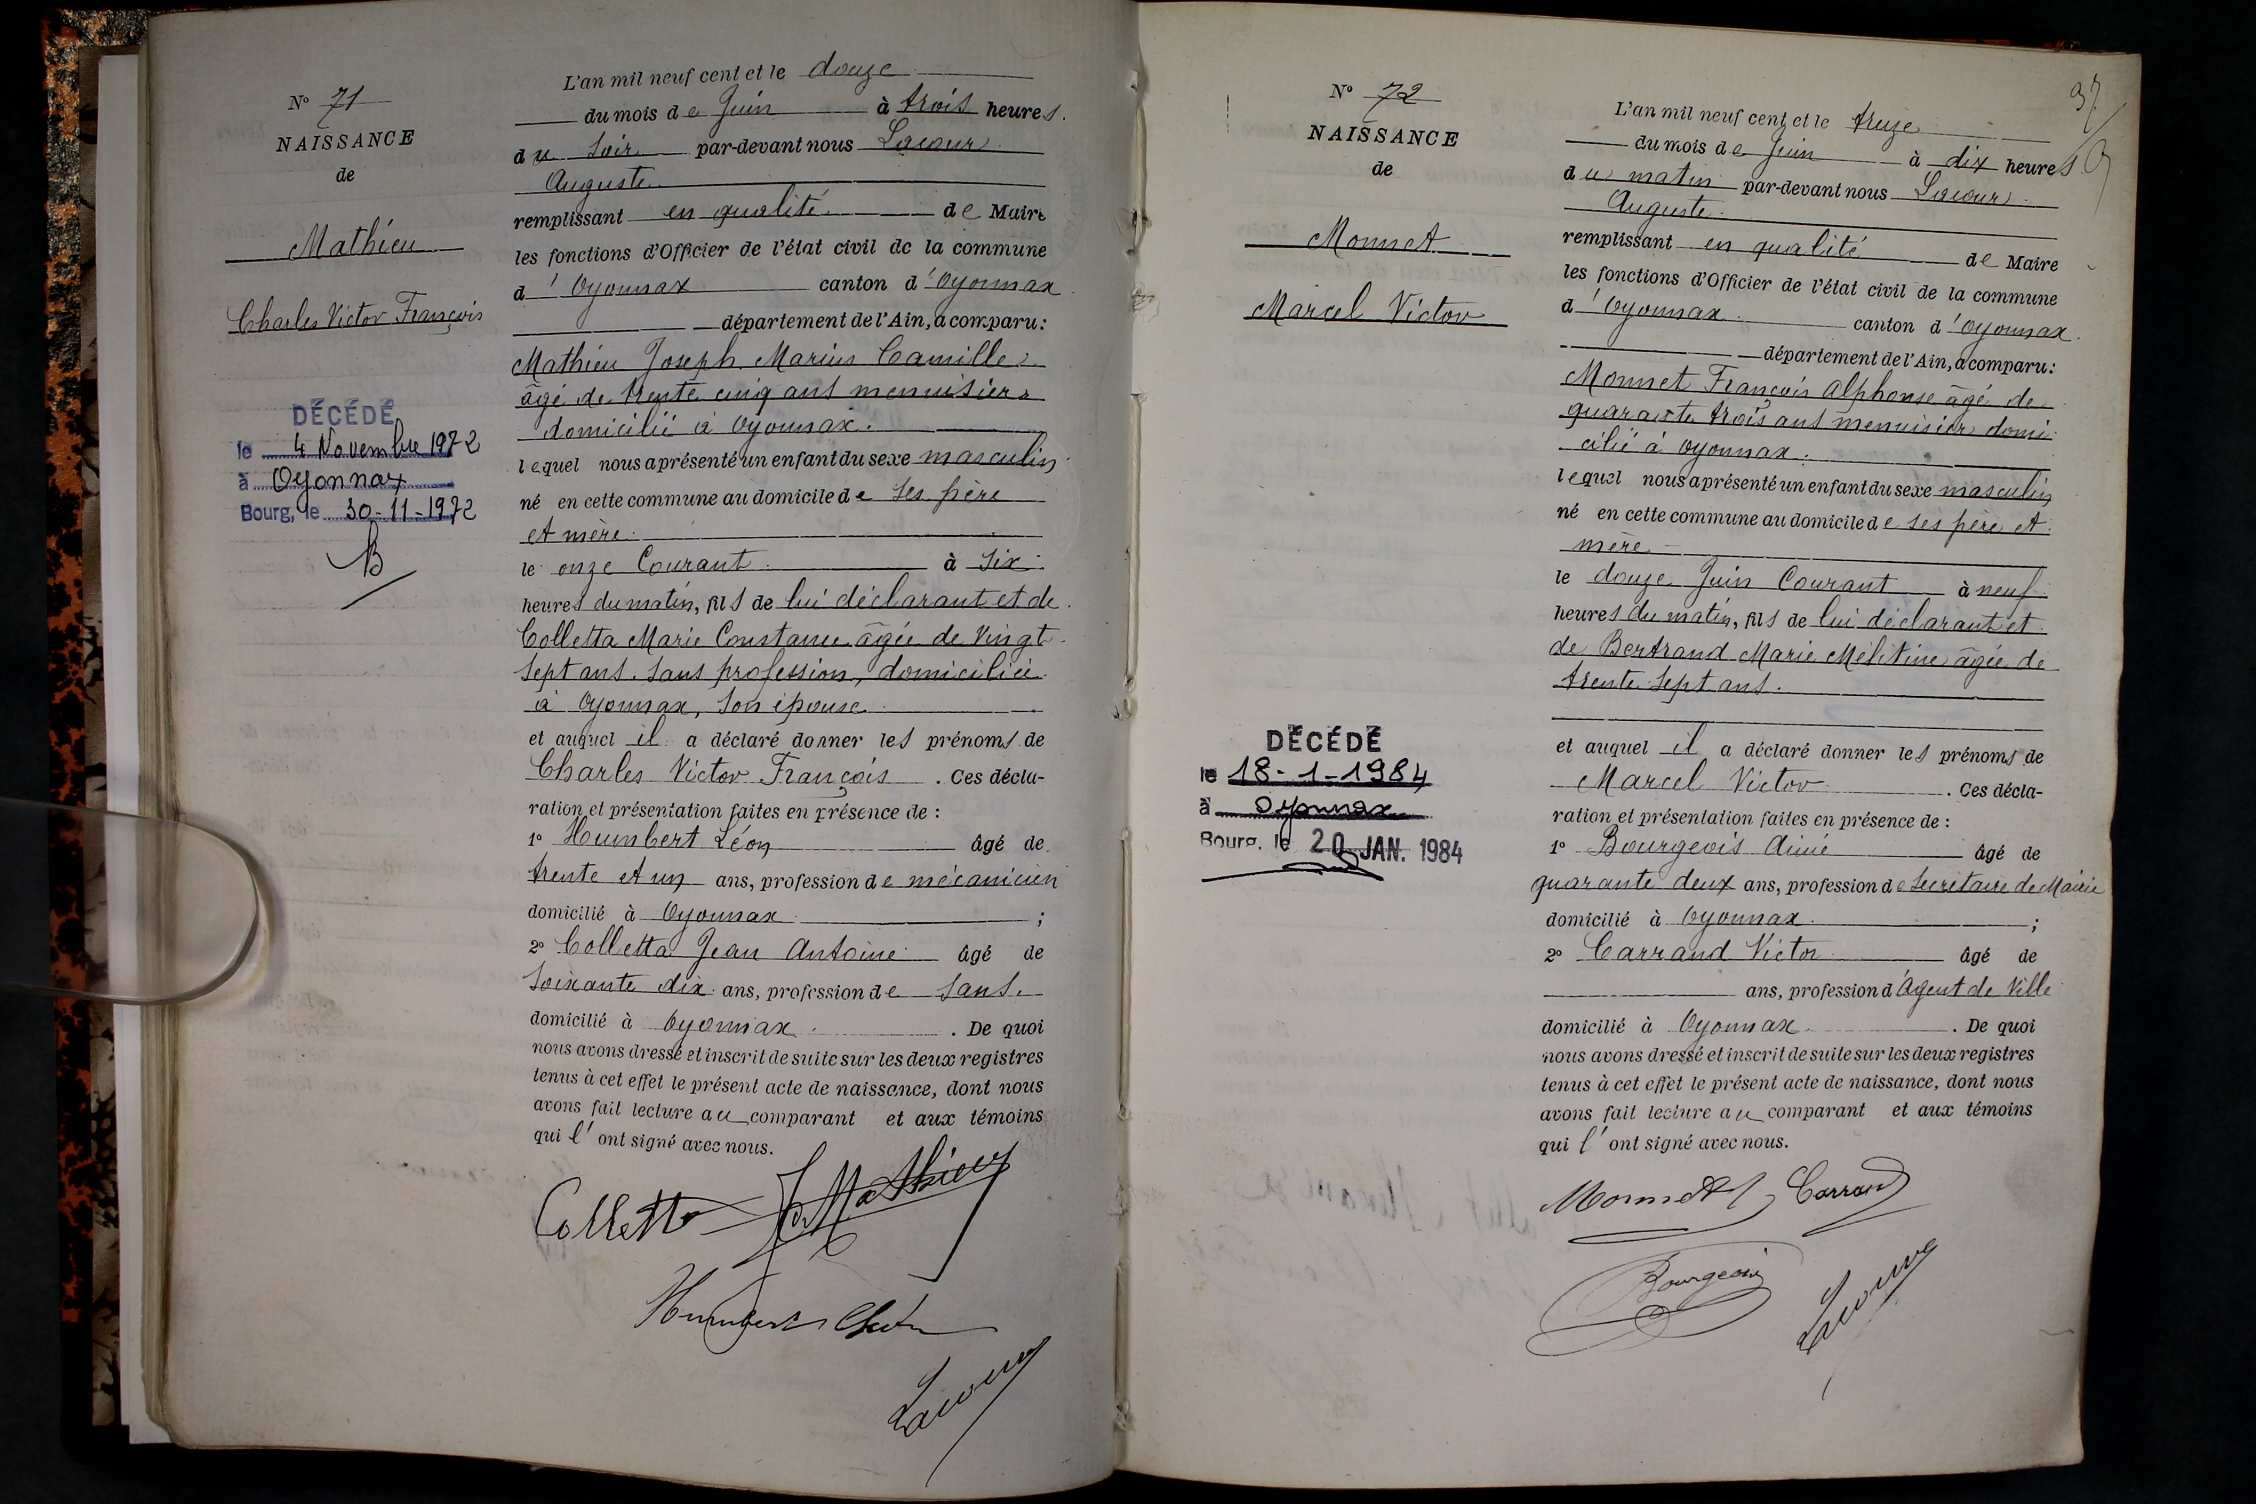 N° 71
NAISSANCE
de
Mathieu
Charles Victor François
DÉCÉDÉ
le 4 Novembre 1972
à Oyonnax
Bourg, le 30-11-1972
B
L'an mil neuf cent et le douze
du mois de Juin à trois heures.
du soir par-devant nous Lacour
Auguste
remplissant en qualité de Maire
les fonctions d'Officier de l'état civil de la commune
d' Oyonnax canton d'Oyonnax
département de l'Ain, a comparu:
Mathieu Joseph Marius Camille
âgé de trente cinq ans menuisier
domicilié à Oyonnax.
lequel nous a présenté un enfant du sexe masculin
né en cette commune au domicile de ses père
et mère
le onze Courant à six
heures du matin, fils de lui déclarant et de
Colletta Marie Constance âgée de vingt
sept ans. sans profession, domiciliée
à Oyonnax, son épouse
et auquel il a déclaré donner les prénoms de
Charles Victor François . Ces décla-
ration et présentation faites en présence de :
1° Humbert Léon âgé de
trente et un ans, profession de mécanicien
domicilié à Oyonnax ;
2° Colletta Jean Antoine âgé de
soixante dix ans, profession de sans.
domicilié à Oyonnax . De quoi
nous avons dressé et inscrit de suite sur les deux registres
tenus à cet effet le présent acte de naissance, dont nous
avons fait lecture au comparant et aux témoins
qui l'ont signé avec nous.
Colletta Mathieu
Humbert Léon
Lacour
37
N° 72
NAISSANCE
de
Monnet
Marcel Victor
DÉCÉDÉ
le 18-1-1984
à Oyonnax
Bourg, le 20 JAN. 1984
L'an mil neuf cent et le treize
du mois de Juin à dix heures
du matin par-devant nous Lacour
Auguste.
remplissant en qualité de Maire
les fonctions d'Officier de l'état civil de la commune
d' Oyonnax canton d'Oyonnax.
département de l'Ain, a comparu:
Monnet François Alphonse âgé de
quarante trois ans menuisier domi
cilié à Oyonnax.
lequel nous a présenté un enfant du sexe masculin
né en cette commune au domicile de ses père et
mère
le douze Juin Courant à neuf
heures du matin, fils de lui déclarant et
de Bertrand Marie Mélitine âgée de
trente sept ans.
et auquel il a déclaré donner les prénoms de
Marcel Victor . Ces décla-
ration et présentation faites en présence de :
1° Bourgeois Aimé âgé de
quarante deux ans, profession de Secrétaire de Mairie
domicilié à Oyonnax ;
2° Carrand Victor âgé de
ans, profession d'Agent de Ville
domicilié à Oyonnax . De quoi
nous avons dressé et inscrit de suite sur les deux registres
tenus à cet effet le présent acte de naissance, dont nous
avons fait lecture au comparant et aux témoins
qui l'ont signé avec nous.
Monnet Carrand
Bourgeois
Lacour